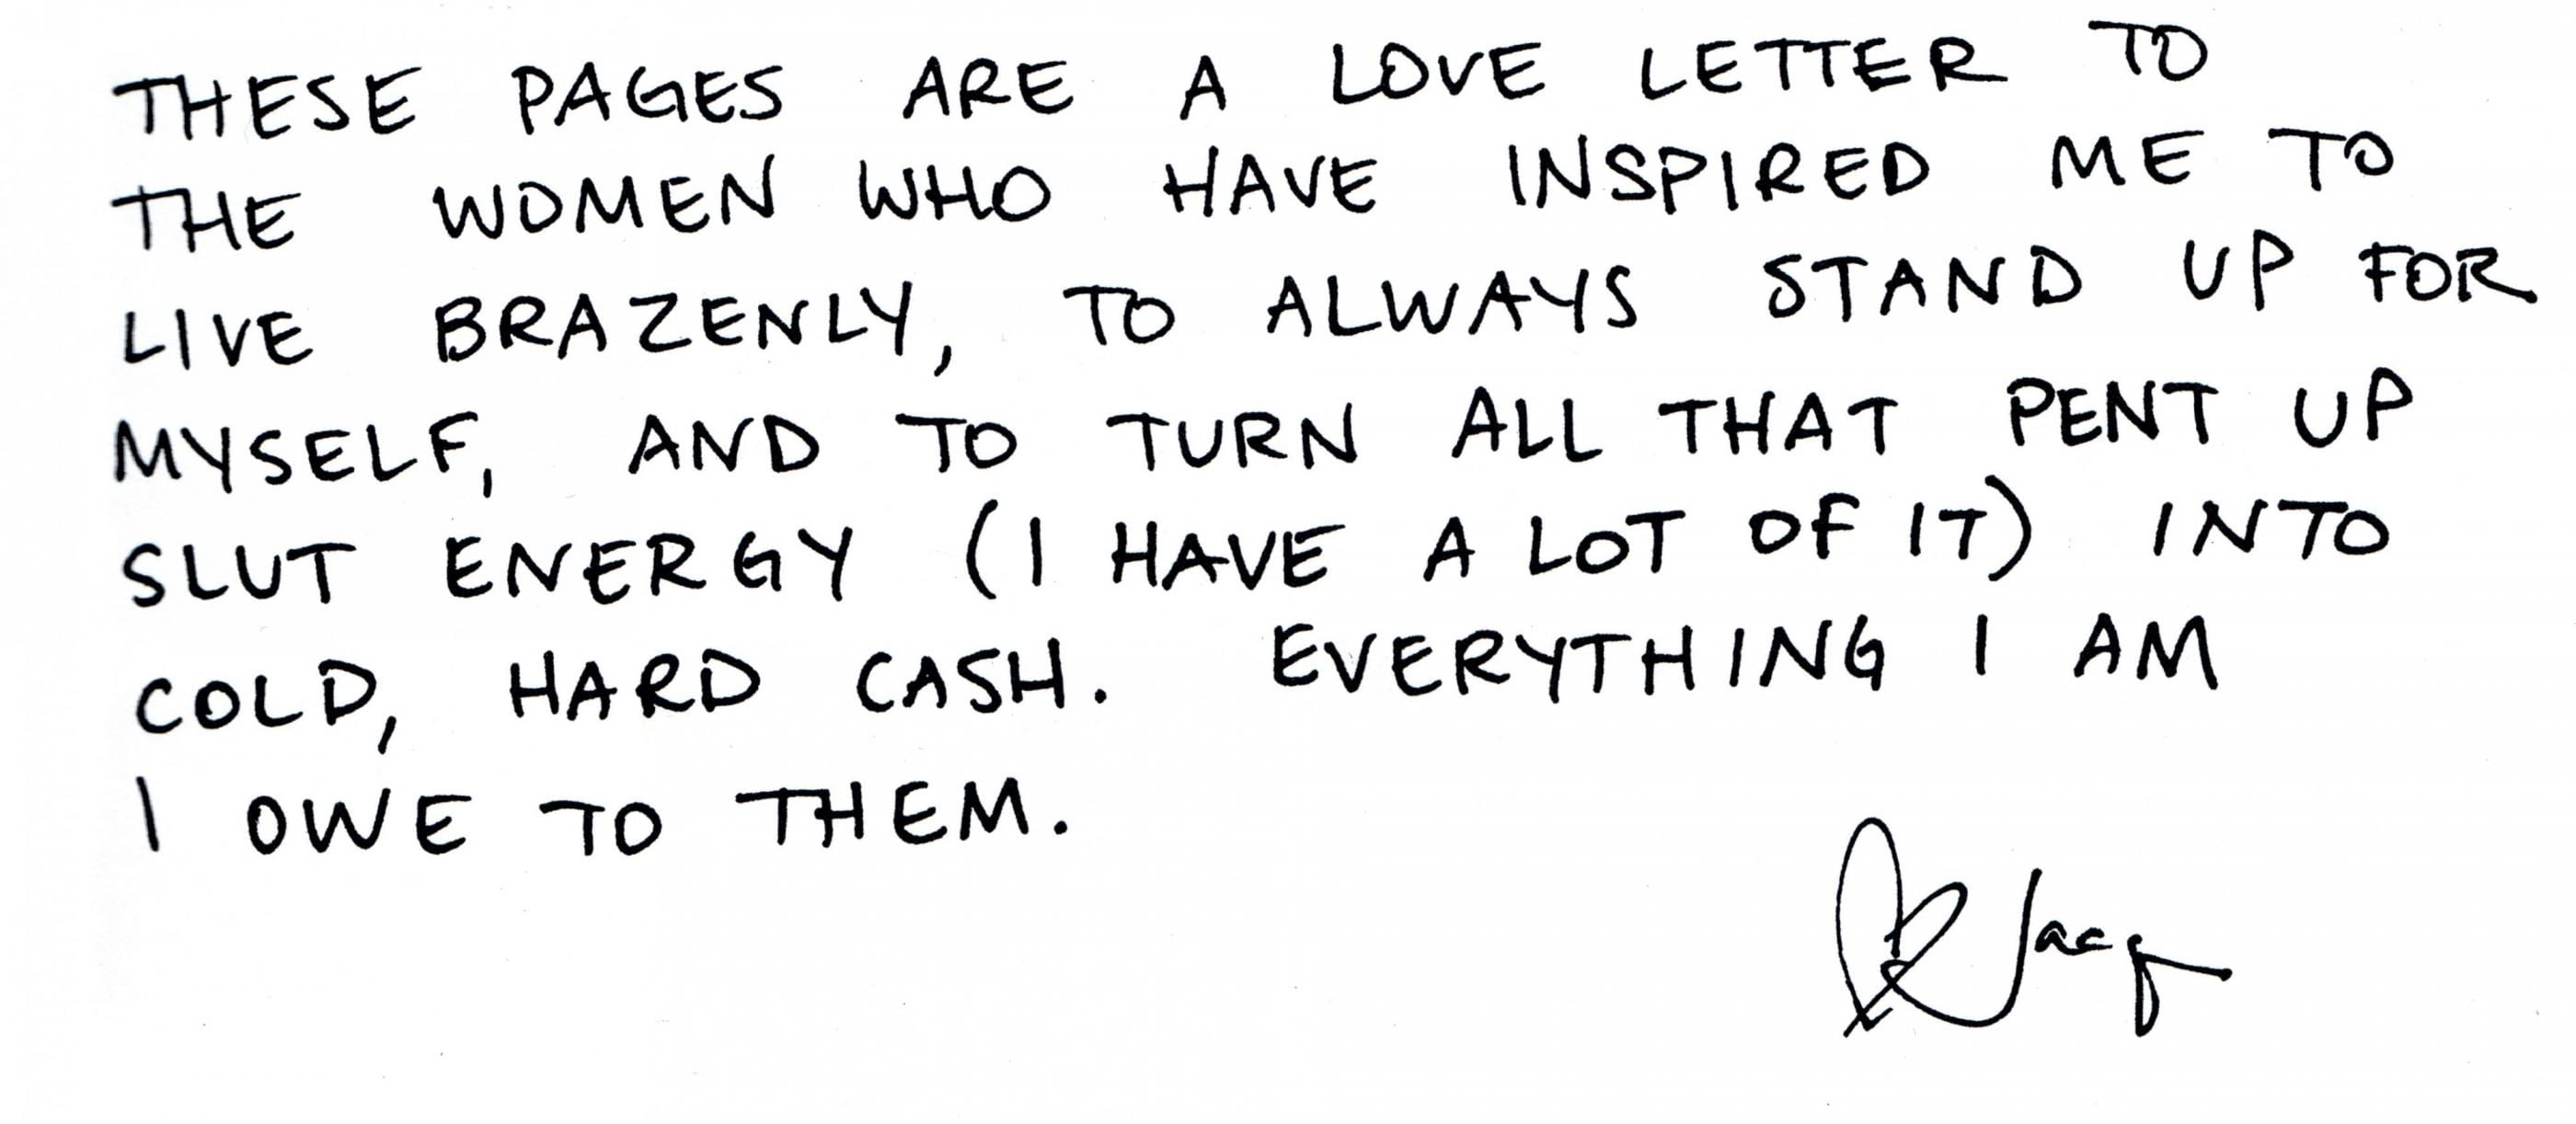 THESE PAGES ARE A LOVE LETTER TO
THE WOMEN WHO HAVE INSPIRED ME TO
LIVE BRAZENLY, TO ALWAYS STAND UP FOR
MYSELF, AND TO TURN ALL THAT PENT UP
SLUT ENERGY (I HAVE A LOT OF IT) INTO
COLD, HARD CASH. EVERYTHING I AM
I OWE TO THEM.
Jacq